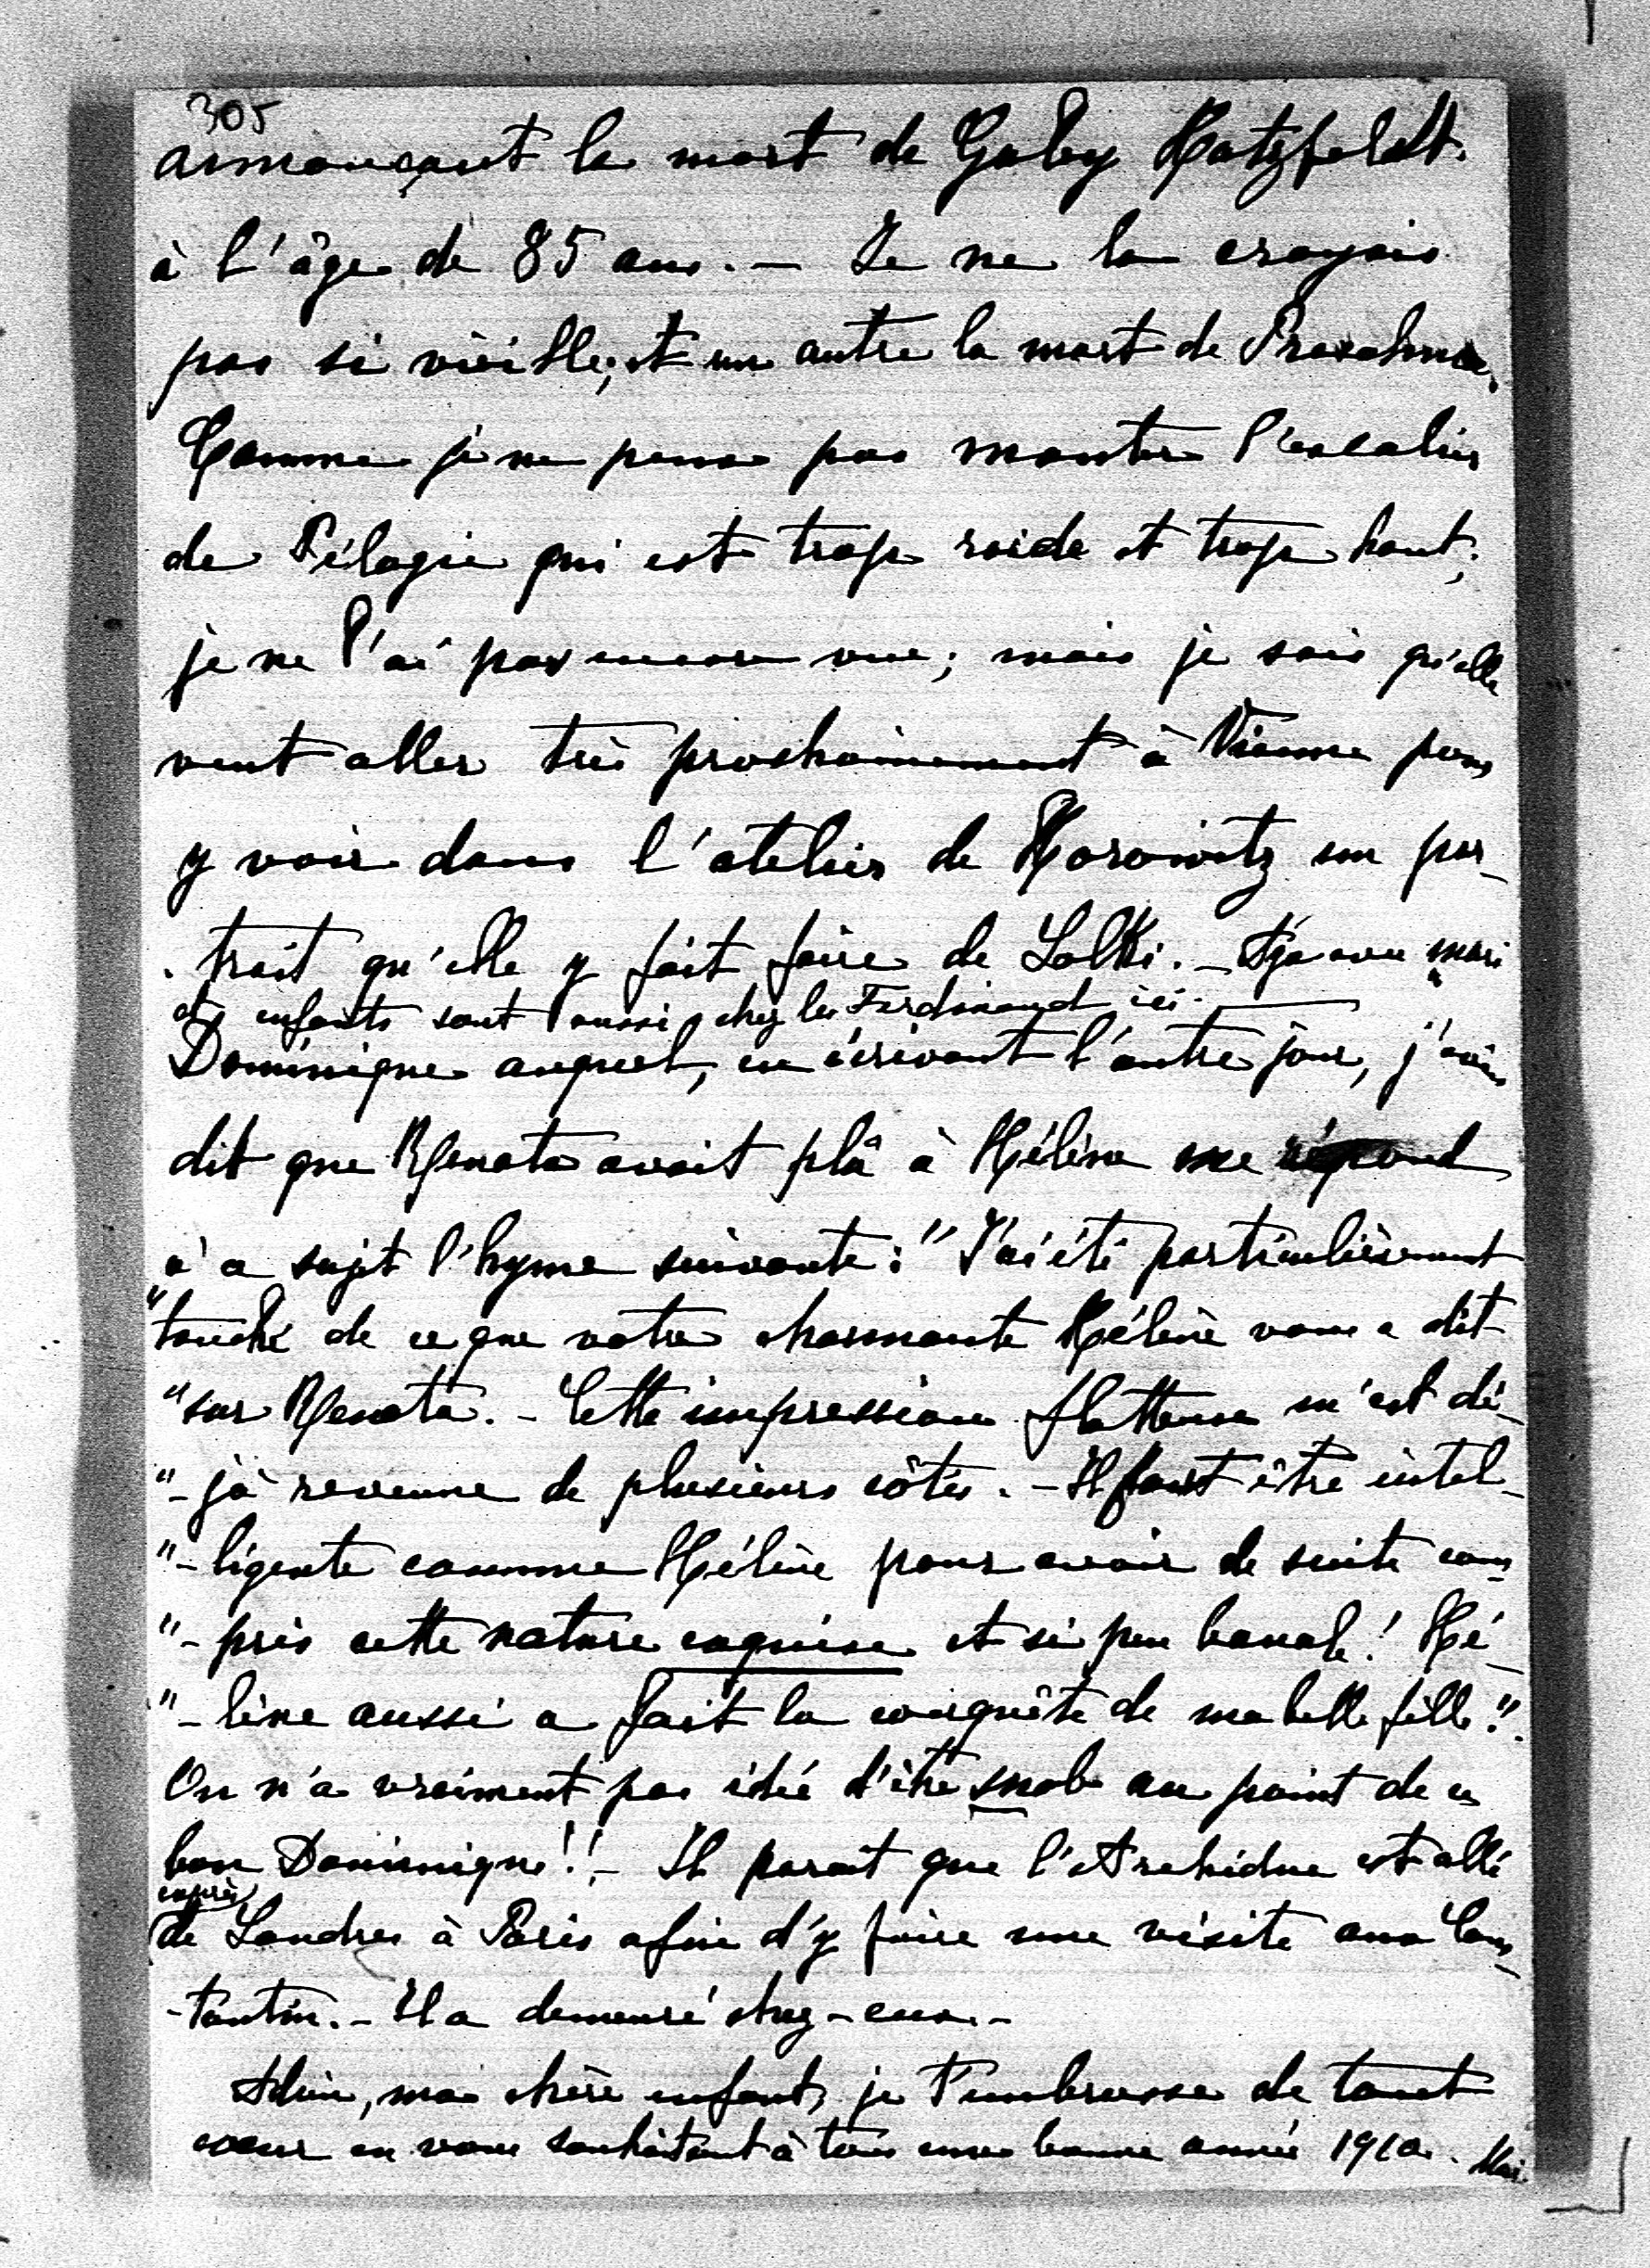 305
annonçant la mort de Gaby Hatzfeldt.
à l'âge de 85 ans. — Je ne la croyais
pas si vieille; et un autre la mort de
Comme je ne peux pas monter l'escalier
de Pélagie qui est trop roide et trop haut;
je ne l'ai pas encore vue; mais je sais qu'elle
veut aller très prochainement à Vienne pour
y voir dans l'atelier de Horowitz un por-
-trait qu'elle y fait faire de - avec mari
et enfants sont aussi chez les Ferdinand ici. —
Dominique auquel, en écrivant l'autre jour, j'avais
dit que Renata avait plû à Hélène me répond
à ce sujet l'hymne suivante: "J'ai été particulièrement
"touché de ce que votre charmante Hélène vous a dit
"sur Renata. - Cette impression flatteuse m'est dé-
"-jà revenue de plusieurs côtés. - Il faut être intel-
"-ligente comme Hélène pour avoir de suite com-
"-pris cette nature exquise et si peu banale! Hé-
"-lène aussi a fait la conquête de ma belle fille".
On n'a vraiment pas idée d'être snob au point de ce
bon Dominique!! - Il parait que l'Archiduc est allé
exprès
de Londres à Paris afin d'y faire une visite aux Cons-
-tantin. - Il a demeuré chez-eux. -
Adieu, ma chère enfant, je t'embrasse de tout
coeur en vous souhaitant à tous une bonne année 1910.